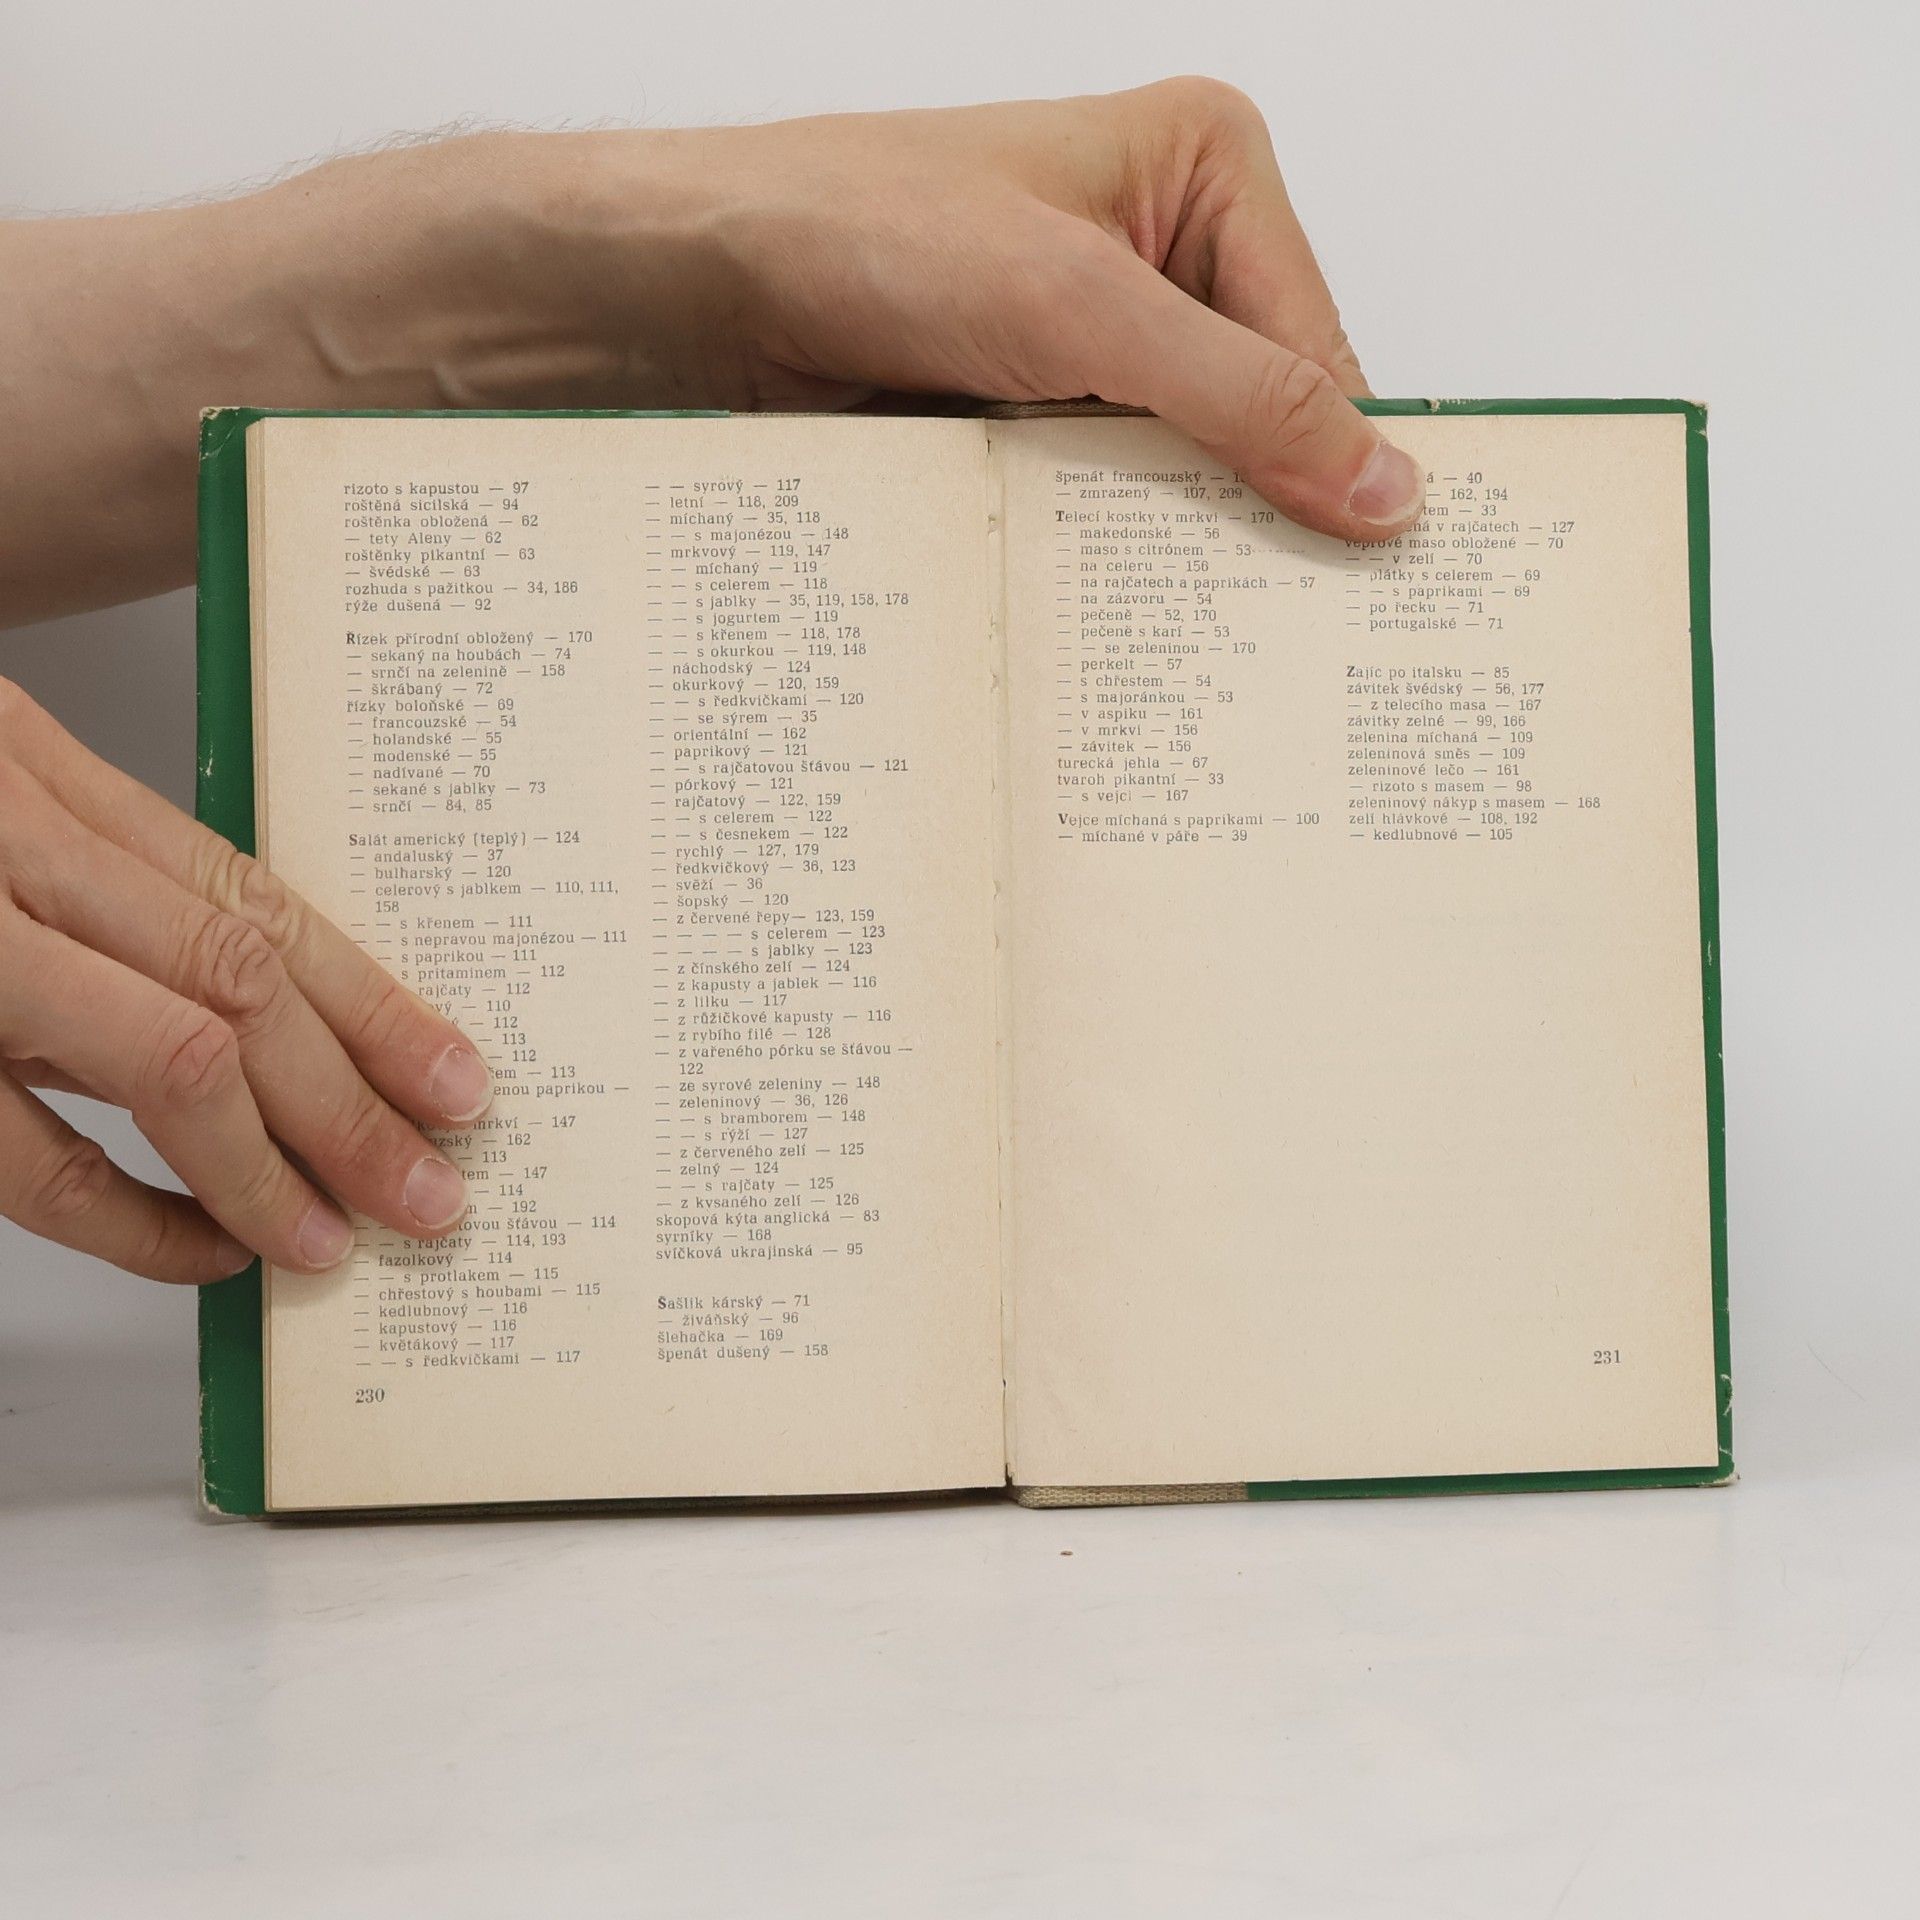 rizoto s kapustou — 97
roštěná sicilská — 94
roštěnka obložená — 62
— tety Aleny — 62
roštěnky pikantní — 63
— švédské — 63
rozhuda s pažitkou — 34, 186
rýže dušená — 92
Řízek přírodní obložený — 170
— sekaný na houbách — 74
— srnčí na zelenině — 158
— škrábaný — 72
řízky boloňské — 69
— francouzské — 54
— holandské — 55
— modenské — 55
— nadívané — 70
— sekané s jablky — 73
— srnčí — 84, 85
Salát americký (teplý) — 124
— andaluský — 37
— bulharský — 120
— celerový s jablkem — 110, 111,
158
— — s křenem — 111
— — s nepravou majonézou — 111
— s paprikou — 111
s pritaminem — 112
rajčaty — 112
— 110
— 112
— 113
— 112
— 113
paprikou —
mrkví — 147
— 162
— 113
— 147
— 114
— 192
šťávou — 114
— — s rajčaty — 114, 193
— fazolkový — 114
— — s protlakem — 115
— chřestový s houbami — 115
— kedlubnový — 116
— kapustový — 116
— květákový — 117
— — s ředkvičkami — 117
230
— — syrový — 117
— letní — 118, 209
— míchaný — 35, 118
— — s majonézou — 148
— mrkvový — 119, 147
— — míchaný — 119
— — s celerem — 118
— — s jablky — 35, 119, 158, 178
— — s jogurtem — 119
— — s křenem — 118, 178
— — s okurkou — 119, 148
— náchodský — 124
— okurkový — 120, 159
— — s ředkvičkami — 120
— — se sýrem — 35
— orientální — 162
— paprikový — 121
— — s rajčatovou šťávou — 121
— pórkový — 121
— rajčatový — 122, 159
— — s celerem — 122
— — s česnekem — 122
— rychlý — 127, 179
— ředkvičkový — 36, 123
— svěží — 36
— šopský — 120
— z červené řepy— 123, 159
— — — — s celerem — 123
— — — — s jablky — 123
— z čínského zelí — 124
— z kapusty a jablek — 116
— z lilku — 117
— z růžičkové kapusty — 116
— z rybího filé — 128
— z vařeného pórku se šťávou —
122
— ze syrové zeleniny — 148
— zeleninový — 36, 126
— — s bramborem — 148
— — s rýží — 127
— z červeného zelí — 125
— zelný — 124
— — s rajčaty — 125
— z kysaného zelí — 126
skopová kýta anglická — 83
syrníky — 168
svíčková ukrajinská — 95
Šašlik kárský — 71
— živáňský — 96
šlehačka — 169
špenát dušený — 158
špenát francouzský —
— zmrazený — 107, 209
Telecí kostky v mrkvi — 170
— makedonské — 56
— maso s citrónem — 53
— na celeru — 156
— na rajčatech a paprikách — 57
— na zázvoru — 54
— pečeně — 52, 170
— pečeně s karí — 53
— — se zeleninou — 170
— perkelt — 57
— s chřestem — 54
— s majoránkou — 53
— v aspiku — 161
— v mrkvi — 156
— závitek — 156
turecká jehla — 67
tvaroh pikantní — 33
— s vejci — 167
Vejce míchaná s paprikami — 100
— míchané v páře — 39
— 40
— 162, 194
— 33
v rajčatech — 127
vepřové maso obložené — 70
— — v zelí — 70
— plátky s celerem — 69
— — s paprikami — 69
— po řecku — 71
— portugalské — 71
Zajíc po italsku — 85
závitek švédský — 56, 177
— z telecího masa — 167
závitky zelné — 99, 166
zelenina míchaná — 109
zeleninová směs — 109
zeleninové lečo — 161
— rizoto s masem — 98
zeleninový nákyp s masem — 168
zelí hlávkové — 108, 192
— kedlubnové — 105
231